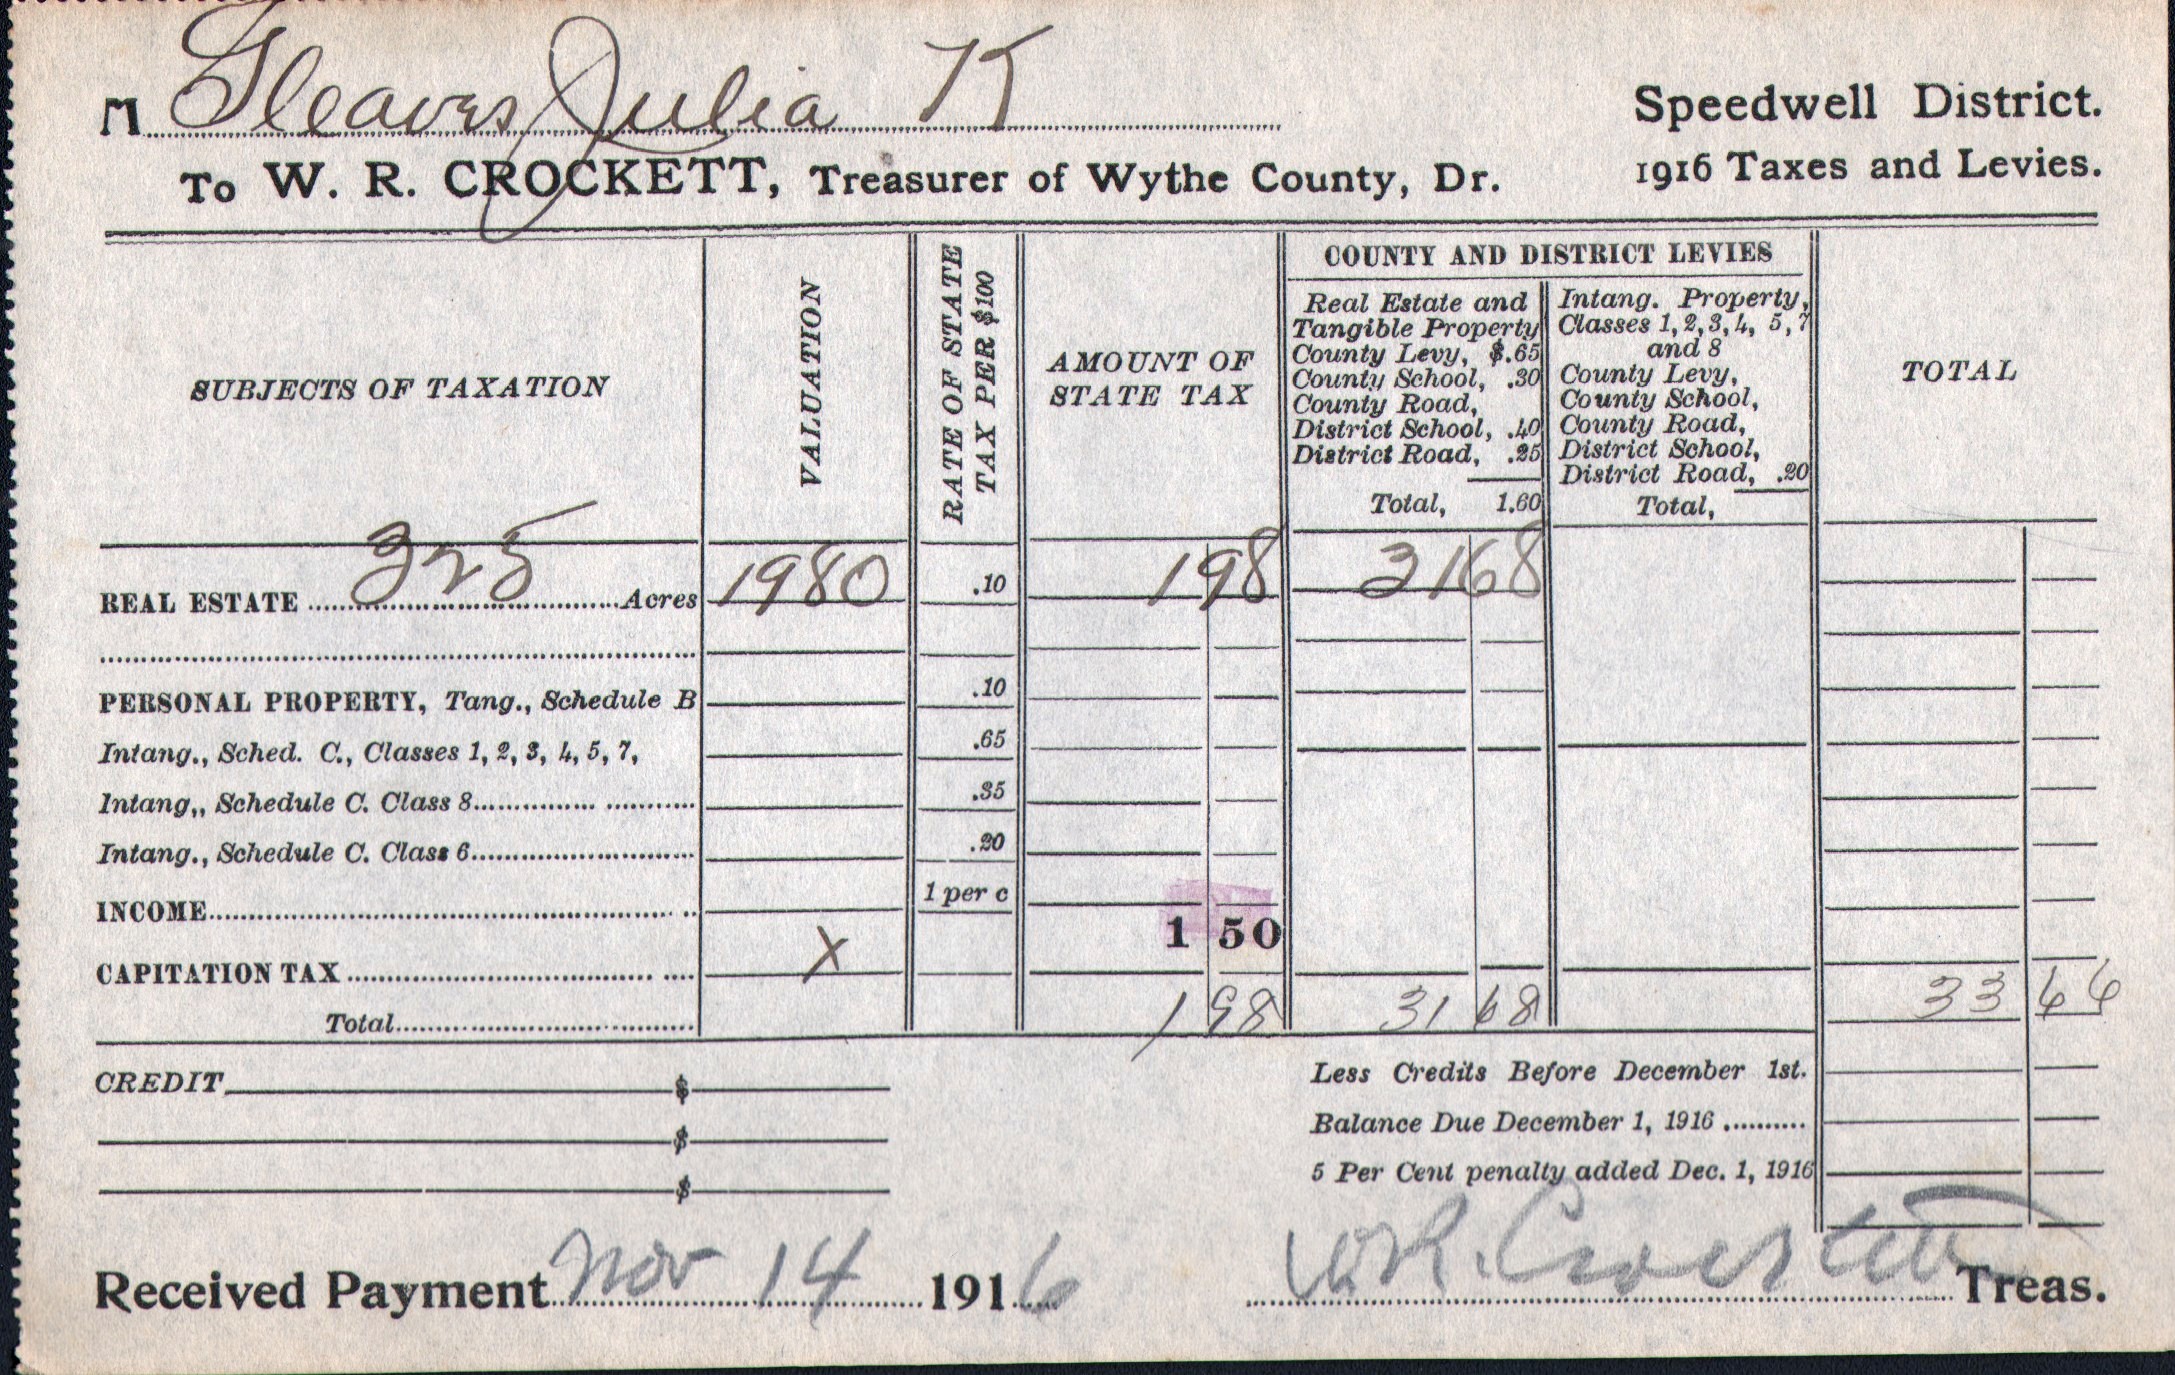 M Gleaves Julia K
Speedwell District.
To W. R. CROCKETT, Treasurer of Wythe County, Dr.
1916 Taxes and Levies.
SUBJECTS OF TAXATION
VALUATION
RATE OF STATE
TAX PER $100
AMOUNT OF
STATE TAX
COUNTY AND DISTRICT LEVIES
Real Estate and
Tangible Property
County Levy, $.65
County School, .30
County Road,
District School, .40
District Road, .25
Total, 1.60
Intang. Property,
Classes 1, 2, 3, 4, 5, 7
and 8
County Levy,
County School,
County Road,
District School,
District Road, .20
Total,
TOTAL
REAL ESTATE 325 Acres 1980 .10 1 98 31 68
PERSONAL PROPERTY, Tang., Schedule B .10
Intang., Sched. C., Classes 1, 2, 3, 4, 5, 7, .65
Intang,, Schedule C. Class 8 .35
Intang., Schedule C. Class 6 .20
INCOME 1 per c
CAPITATION TAX X 1 50
Total 1 98 31 68 33 66
CREDIT $
$
$
Less Credits Before December 1st.
Balance Due December 1, 1916
5 Per Cent penalty added Dec. 1, 1916
Received Payment Nov 14 1916 W R. Crockett Treas.